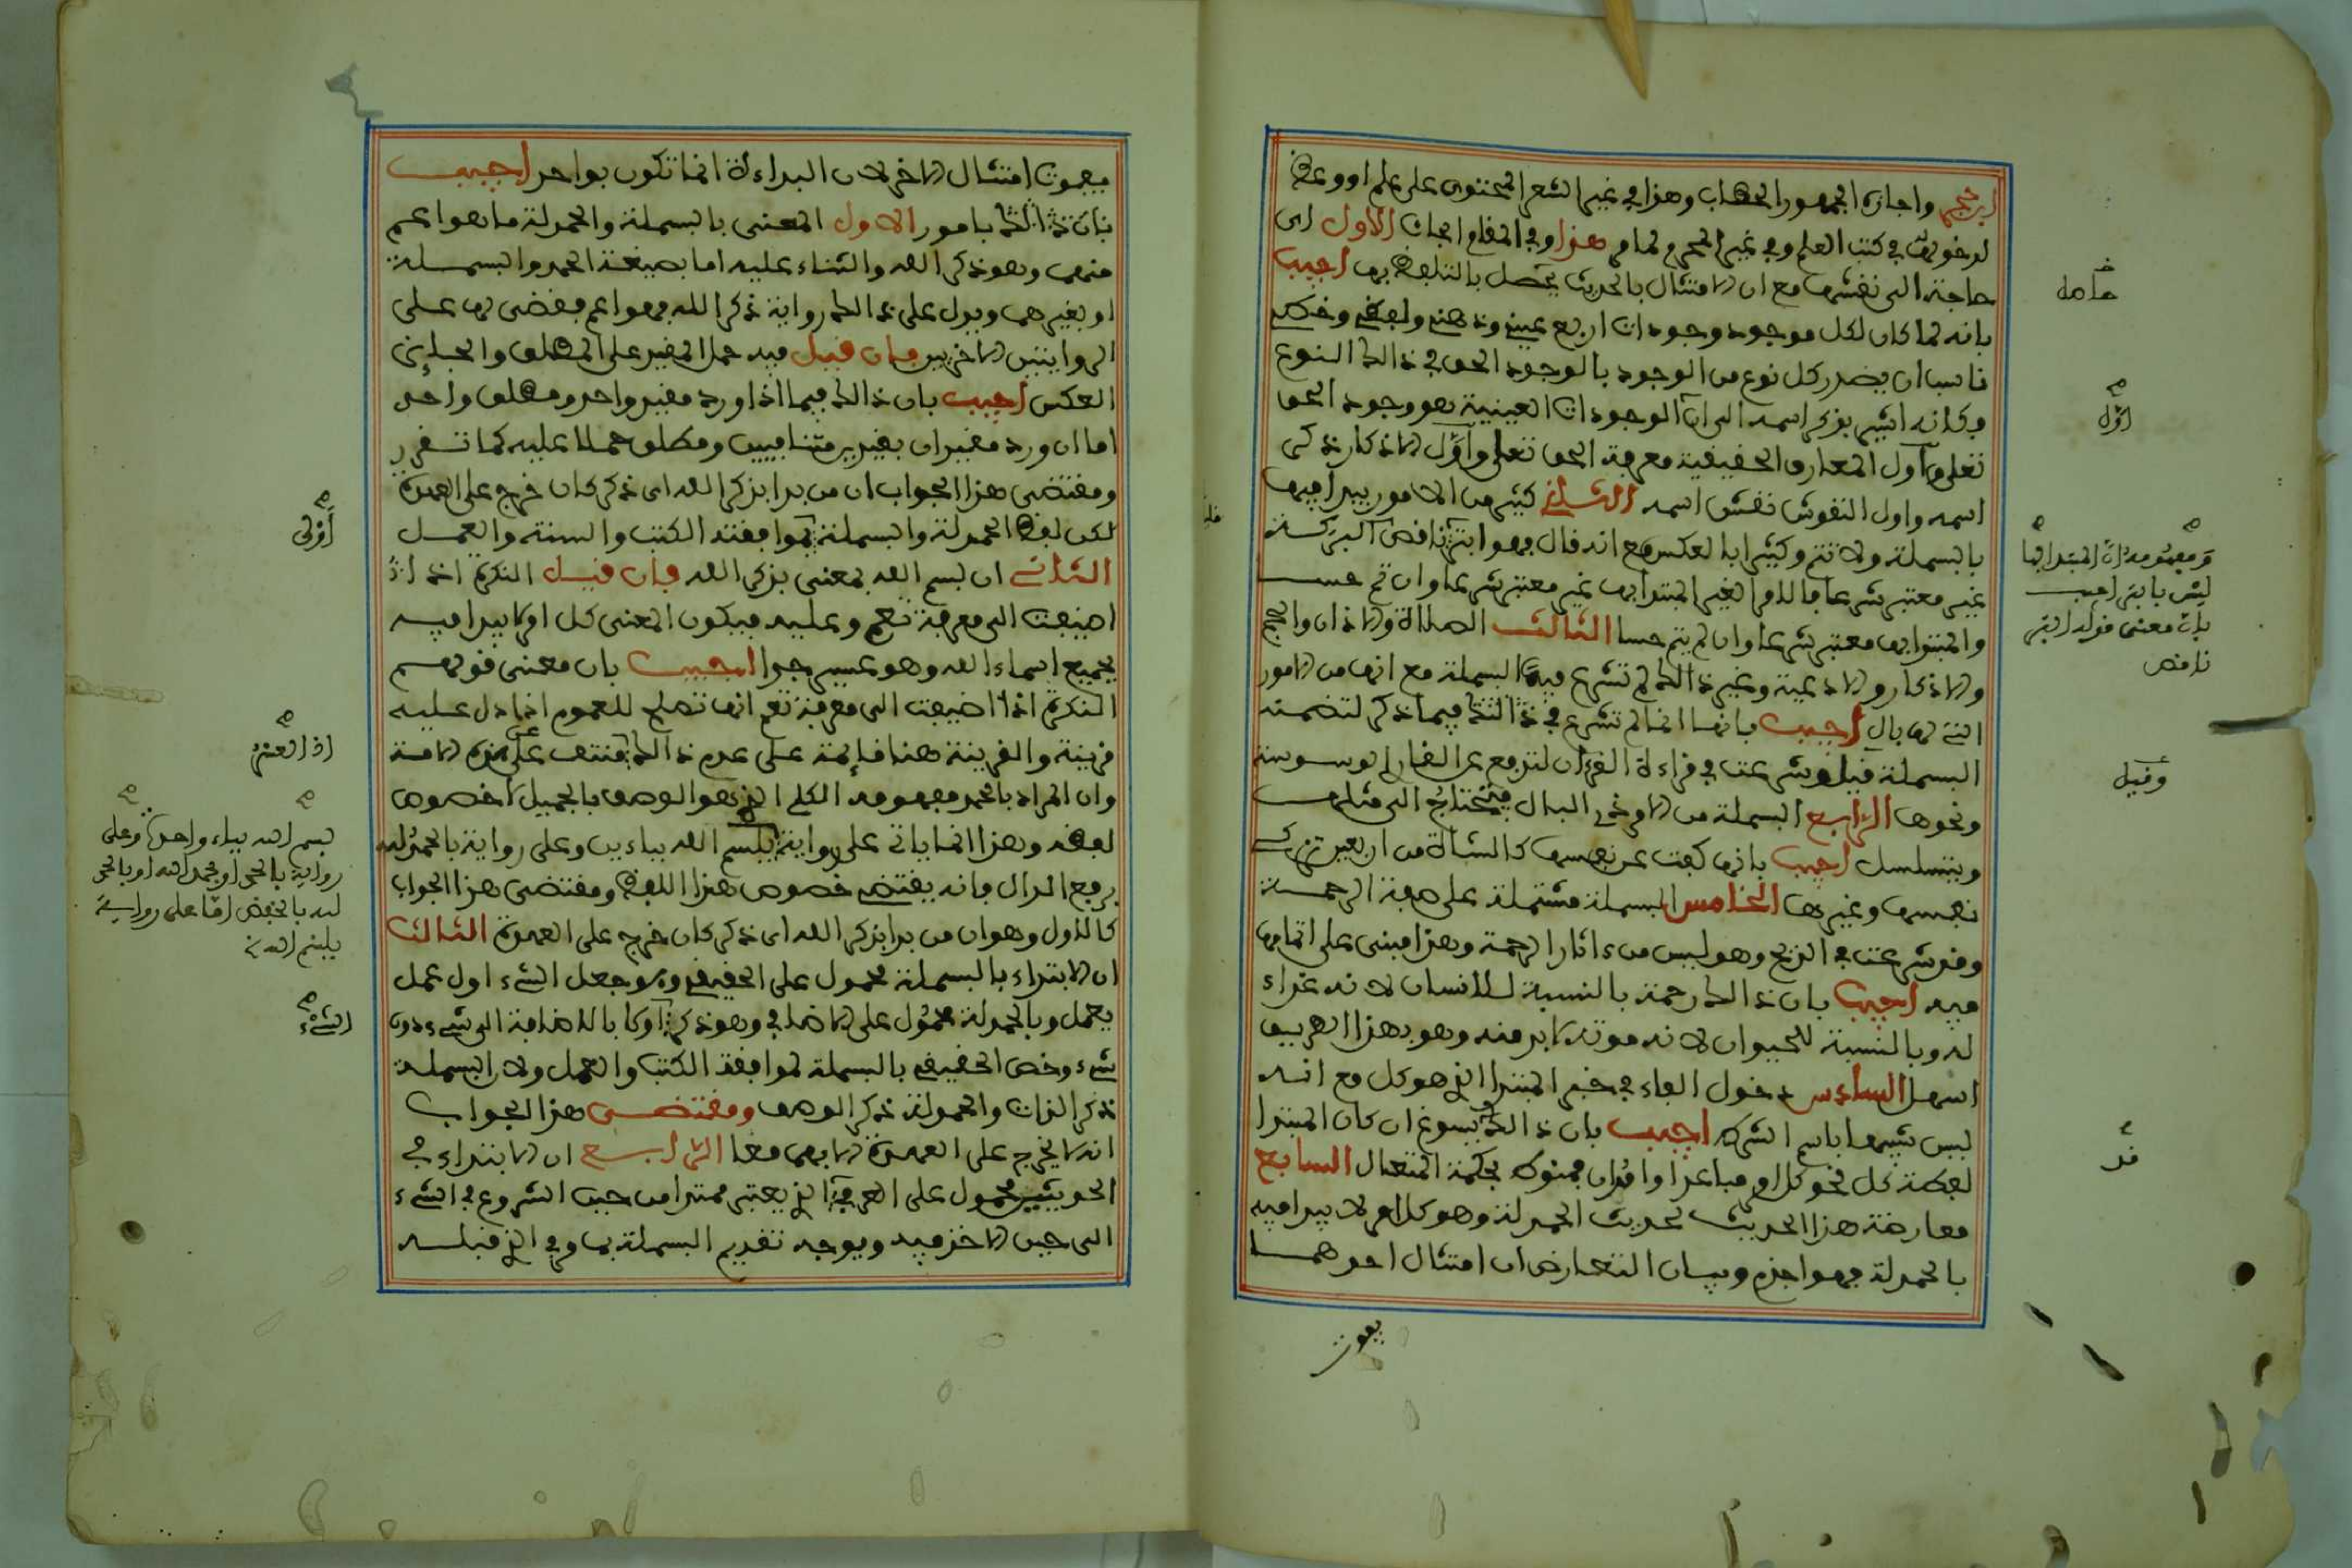 ابن حجر واجازه الجمهور الخطاب وهذا في غير الشعر المحتوى على علم او وعظ
لدخولهن في كتب العلم وفي غير المحرم لما مر هذا وفي المقام ابحاث الاول اى
حاجة الى نفشها مع ان الامتثال بالحديث يحصل بالتلفظ بها اجيب
بانه لما كان لكل موجود وجودات اربع عيني وذهني ولفظي وخطي
ناسب ان يصدر كل نوع من الوجود بالوجود الحق في ذالك النوع
وكانه اشير بذكر اسمه الى ان الوجودات العينية هو وجود الحق
تعلى وآول المعارف الحقيقية معرفة الحق تعلى واول الاذكار ذكر
اسمه واول النقوش نقش اسمه الثاني كثير من الامور يبدا فيها
بالبسملة ولا تتم وكثيرا بالعكس مع انه قال فهو ابتر ناقص البركة
غير معتبر شرعا فالامر الغير المبتدا بها غير معتبر شرعا وان تم حسا
والمبتدا بها معتبر شرعا وان لم يتم حسا الثالث الصلاة والاذان والحج
والاذكار والادعية وغير ذالك لم تشرع فيها البسملة مع انها من الامور
التي لها بال اجيب بانها انما لم تشرع في ذالك فيما ذكر لتضمنه
البسملة قيل وشرعت في قراءة القرءان لتدفع عن القارئ الوسوسة
ونحوها الرابع البسملة من الامر ذي البال فتحتاج الى مثلها
ويتسلسل اجيب بانها كفت عن نفسها كالشاة من اربعين تزكي
نفسها وغيرها الخامس البسملة مشتملة على صفة الرحمة
وقد شرعت في الذبح وهو ليس من ءاثار الرحمة وهذا مبني على اتمامها
فيه اجيب بان ذالك رحمة بالنسبة للانسان لانه غذاء
له وبالنسبة للحيوان لانه موته لابد منه وهو بهذا الطريق
اسهل السادس دخول الفاء في خبر المبتدا الذي هو كل مع انه
ليس شبيها باسم الشرك اجيب بان ذالك يسوغ ان كان المبتدا
لفظة كل نحو كل امر مباعد او مدان فمنوط بحكمة المتعال السابع
معارضة هذا الحديث لحديث الحمدلة وهو كل امر لا يبدا فيه
بالحمدلة فهو اجذم وبيان التعارض ان امتثال احدهما
يفوت
حاصله
اول
ومفهومه ان المبتدا بها
ليس بابتر اجيب
بان معنى قوله ابتر
ناقص
وقيل
قد
يفوت امتثال الاخر لان البداءة انما تكون بواحد اجيب
بان ذالك بامور الاول المعنى بالبسملة والحمدلة ما هو اعم
منهما وهو ذكر الله والثناء عليه اما بصيغة الحمد والبسملة
او بغيرهما ويدل على ذالك رواية ذكر الله فهو اعم فقضى لها على
الروايتين الاخريين فان قيل فيه حمل المقيد على المطلق والجارى
العكس اجيب بان ذالك فيما اذا ورد مقيد واحد ومطلق واحد
اما ان ورد مقيدان بقيدين متنافيين ومطلق حملا عليه كما تقرر
ومقتضى هذا الجواب ان من بدا بذكر الله اى ذكر كان خرج على العهدة
لكن لفظ الحمدلة والبسملة لموافقته الكتب والسنة والعمل
الثاني ان بسم الله بمعنى بذكر الله فان قيل النكرة اذا
اضيفت الى معرفة تعم وعليه فيكون المعنى كل امر لا يبدا فيه
بجميع اسماء الله وهو عسير جدا اجيب بان معنى قولهم
النكرة اذا اضيفت الى معرفة تعم انها تصلح للعموم اذا دل عليه
قرينة والقرينة هنا قائمة على عدم ذالك
وان المراد بالحمد مفهومه الكلي الذي هو الوصف بالجميل لا خصوص
لفظه وهذا انما ياتي على رواية ببسم الله بباءين وعلى رواية بالحمد لله
برفع الدال فانه يقتضي خصوص هذا اللفظ ومقتضى هذا الجواب
كالاول وهو ان من بدا بذكر الله اى ذكر كان خرج على العهدة الثالث
ان الابتداء بالبسملة محمول على الحقيقي وهو جعل الشيء اول عمل
يعمل وبالحمدلة محمول على الاضافي وهو ذكره اولا بالاضافة الى شيء دون
شيء وخص الحقيقي بالبسملة لموافقة الكتب والعمل ولان البسملة
ذكر الذات والحمدلة ذكر الوصف ومقتضى هذا الجواب
انه لا يخرج على العهدة الا بهما معا الرابع ان الابتداء في
الحديثين محمول على العرفي الذي يعتبر ممتدا من حين الشروع في الشيء
الى حين الاخذ فيه ويوجه تقديم البسملة بما مر في الذي قبله
اولى
اذ العنوم
بسم الله بباء واحدة وعلى
رواية بالحمد او بحمد الله او بالحمد
لله بالخفض اما على رواية
ببسم الله
الشيء